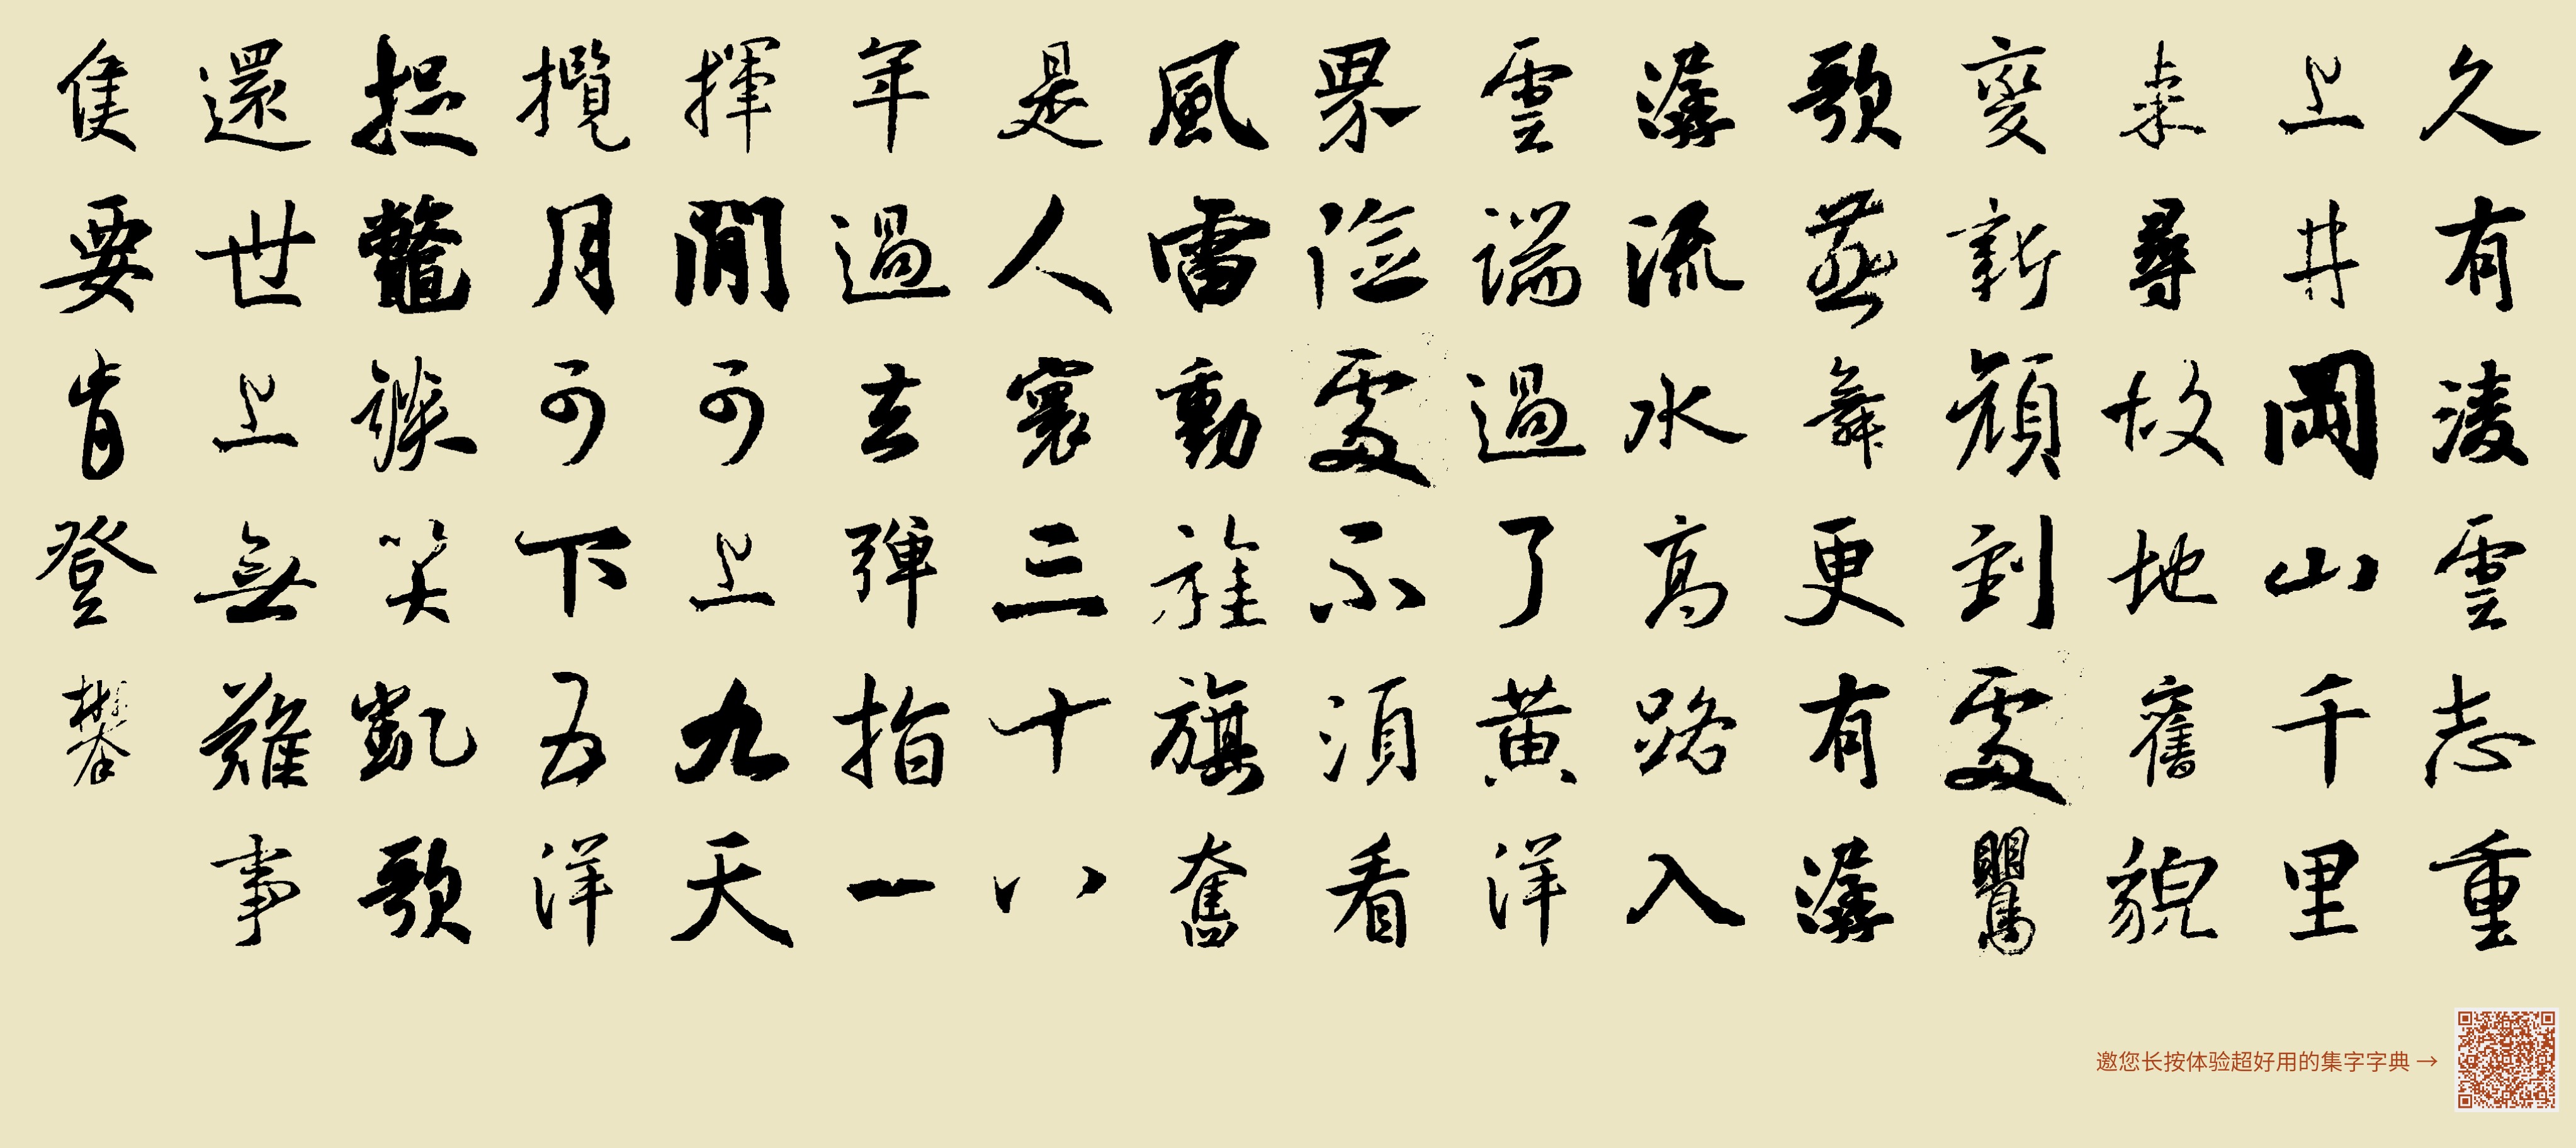 久有淩雲志重
上井岡山千里
来尋故地舊貌
變新顔到處鸎
歌燕舞更有潺
潺流水高路入
雲端過了黄洋
界险處不須看
風雷動旌旗奮
是人寰三十八
年過去彈指一
揮間可上九天
攬月可下五洋
捉鱉談笑凱歌
還世上無難事
隻要肯登攀
邀您长按体验超好用的集字字典 →